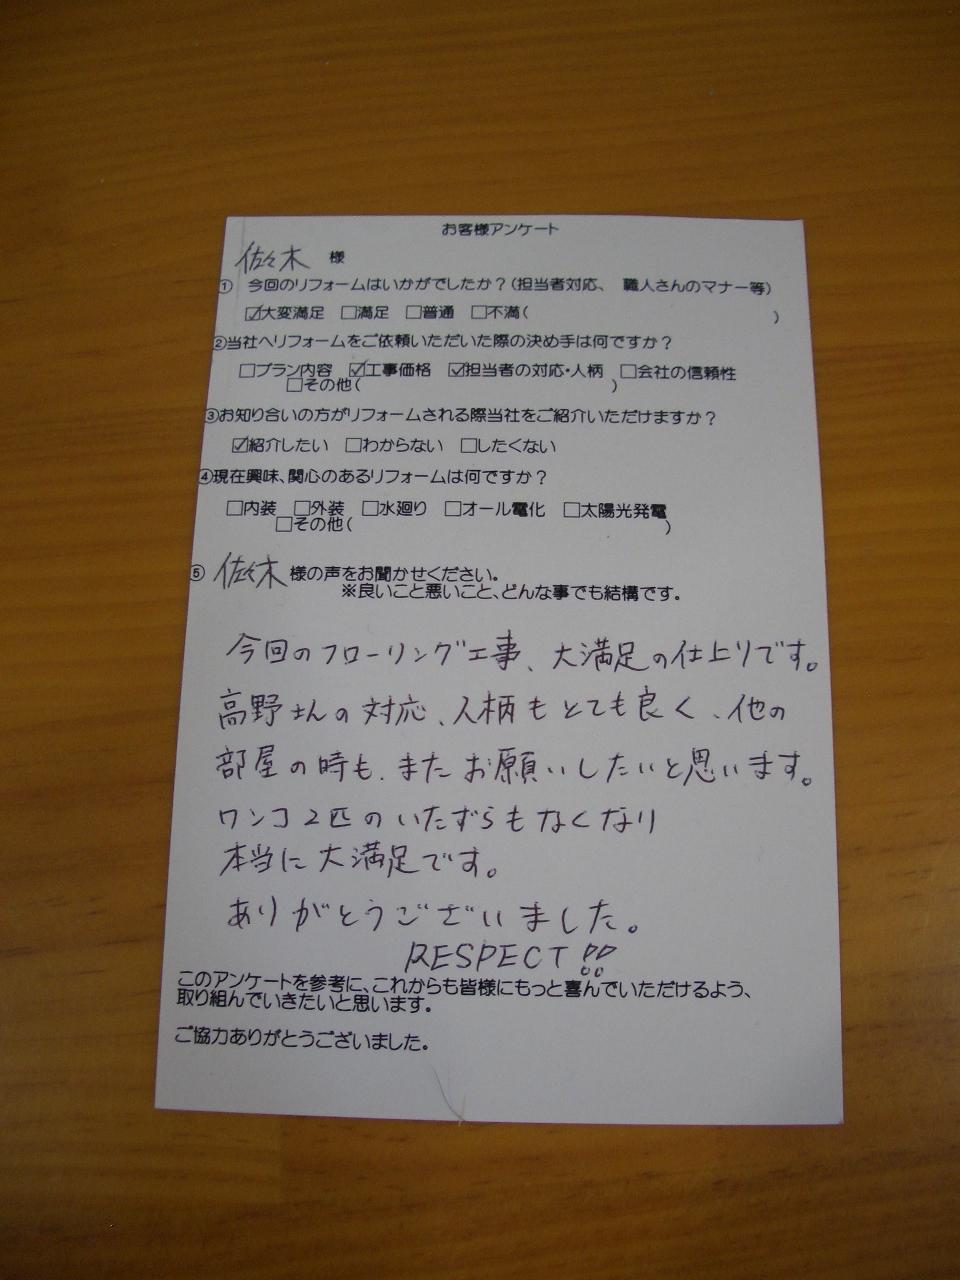 お客様アンケート
佐々木 様
① 今回のリフォームはいかがでしたか?(担当者対応、 職人さんのマナー等)
☑大変満足 □満足 □普通 □不満( )
②当社へリフォームをご依頼いただいた際の決め手は何ですか?
□プラン内容 ☑工事価格 ☑担当者の対応・人柄 □会社の信頼性
□その他( )
③お知り合いの方がリフォームされる際当社をご紹介いただけますか?
☑紹介したい □わからない □したくない
④現在興味、関心のあるリフォームは何ですか?
□内装 □外装 □水廻り □オール電化 □太陽光発電
□その他( )
⑤ 佐々木 様の声をお聞かせください。
※良いこと悪いこと、どんな事でも結構です。
今回のフローリング工事、大満足の仕上りです。
高野さんの対応、人柄もとても良く、他の
部屋の時も、またお願いしたいと思います。
ワンコ2匹のいたずらもなくなり
本当に大満足です。
ありがとうございました。
RESPECT!!
このアンケートを参考に、これからも皆様にもっと喜んでいただけるよう、
取り組んでいきたいと思います。
ご協力ありがとうございました。